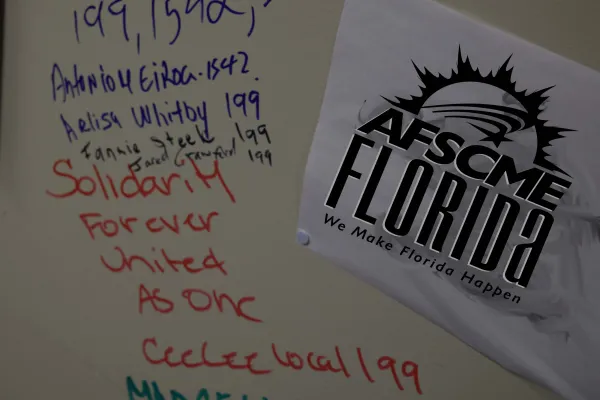 199, 1542,
Antonio M Eiroa. 1542.
Aelisa Whitby 199
Fannie Steele 199
Jared Crawford 199
Solidarity
Forever
United
As One
CeeCee local 199
AFSCME
FLORIDA
We Make Florida Happen